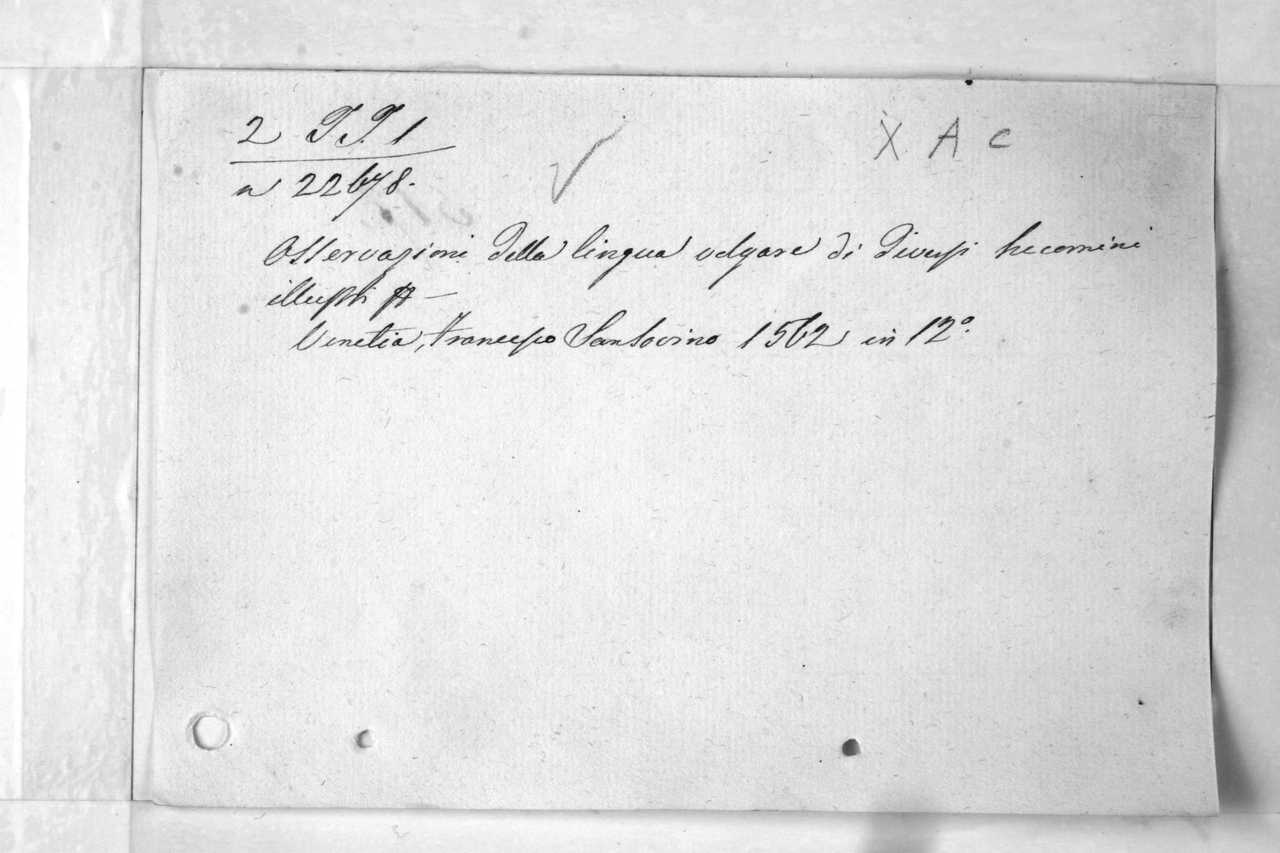 2 T.T. 1
X A C
n 22678.
Osservazioni della lingua volgare di diversi huomini
illustri
Venetia, Francesco Sansovino 1562 in 12º.